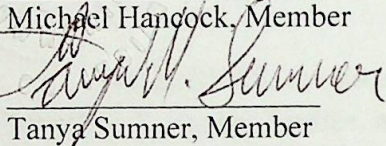 Michael Hancock, Member
Tanya M. Sumner
Tanya Sumner, Member